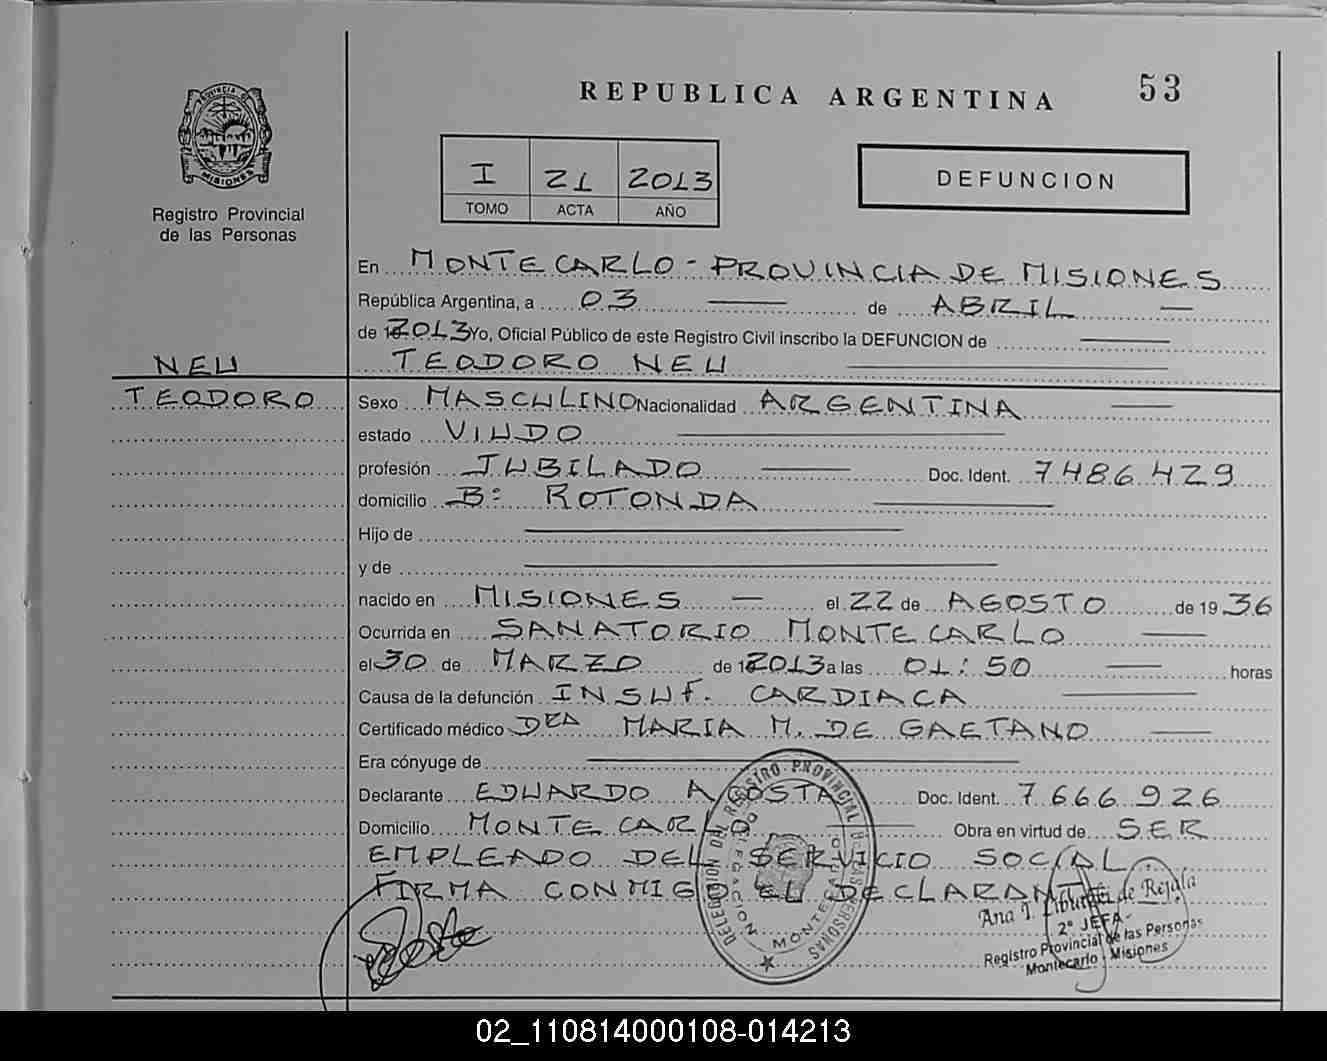 REPUBLICA ARGENTINA
53
PROVINCIA DE
MISIONES
Registro Provincial
de las Personas
I 21 2013
TOMO ACTA AÑO
DEFUNCION
En MONTECARLO - PROVINCIA DE MISIONES
República Argentina, a 03 de ABRIL
de 2013 Yo, Oficial Público de este Registro Civil inscribo la DEFUNCION de
NEU
TEODORO NEU
TEODORO
Sexo MASCULINO Nacionalidad ARGENTINA
estado VIUDO
profesión JUBILADO Doc. Ident. 7486429
domicilio B: ROTONDA
Hijo de
y de
nacido en MISIONES el 22 de AGOSTO de 1936
Ocurrida en SANATORIO MONTECARLO
el 30 de MARZO de 2013 a las 01:50 horas
Causa de la defunción INSUF. CARDIACA
Certificado médico DRA MARIA M. DE GAETANO
Era cónyuge de
Declarante EDUARDO ACOSTA Doc. Ident. 7666926
Domicilio MONTECARLO Obra en virtud de SER
EMPLEADO DEL SERVICIO SOCIAL
FIRMA CONMIGO EL DECLARANTE
DELEGACION DEL REGISTRO PROVINCIAL DE LAS PERSONAS
DELEGACION
MONTECARLO
Ana de Rejala
2° JEFA
Registro Provincial de las Personas
Montecarlo - Misiones
02_110814000108-014213